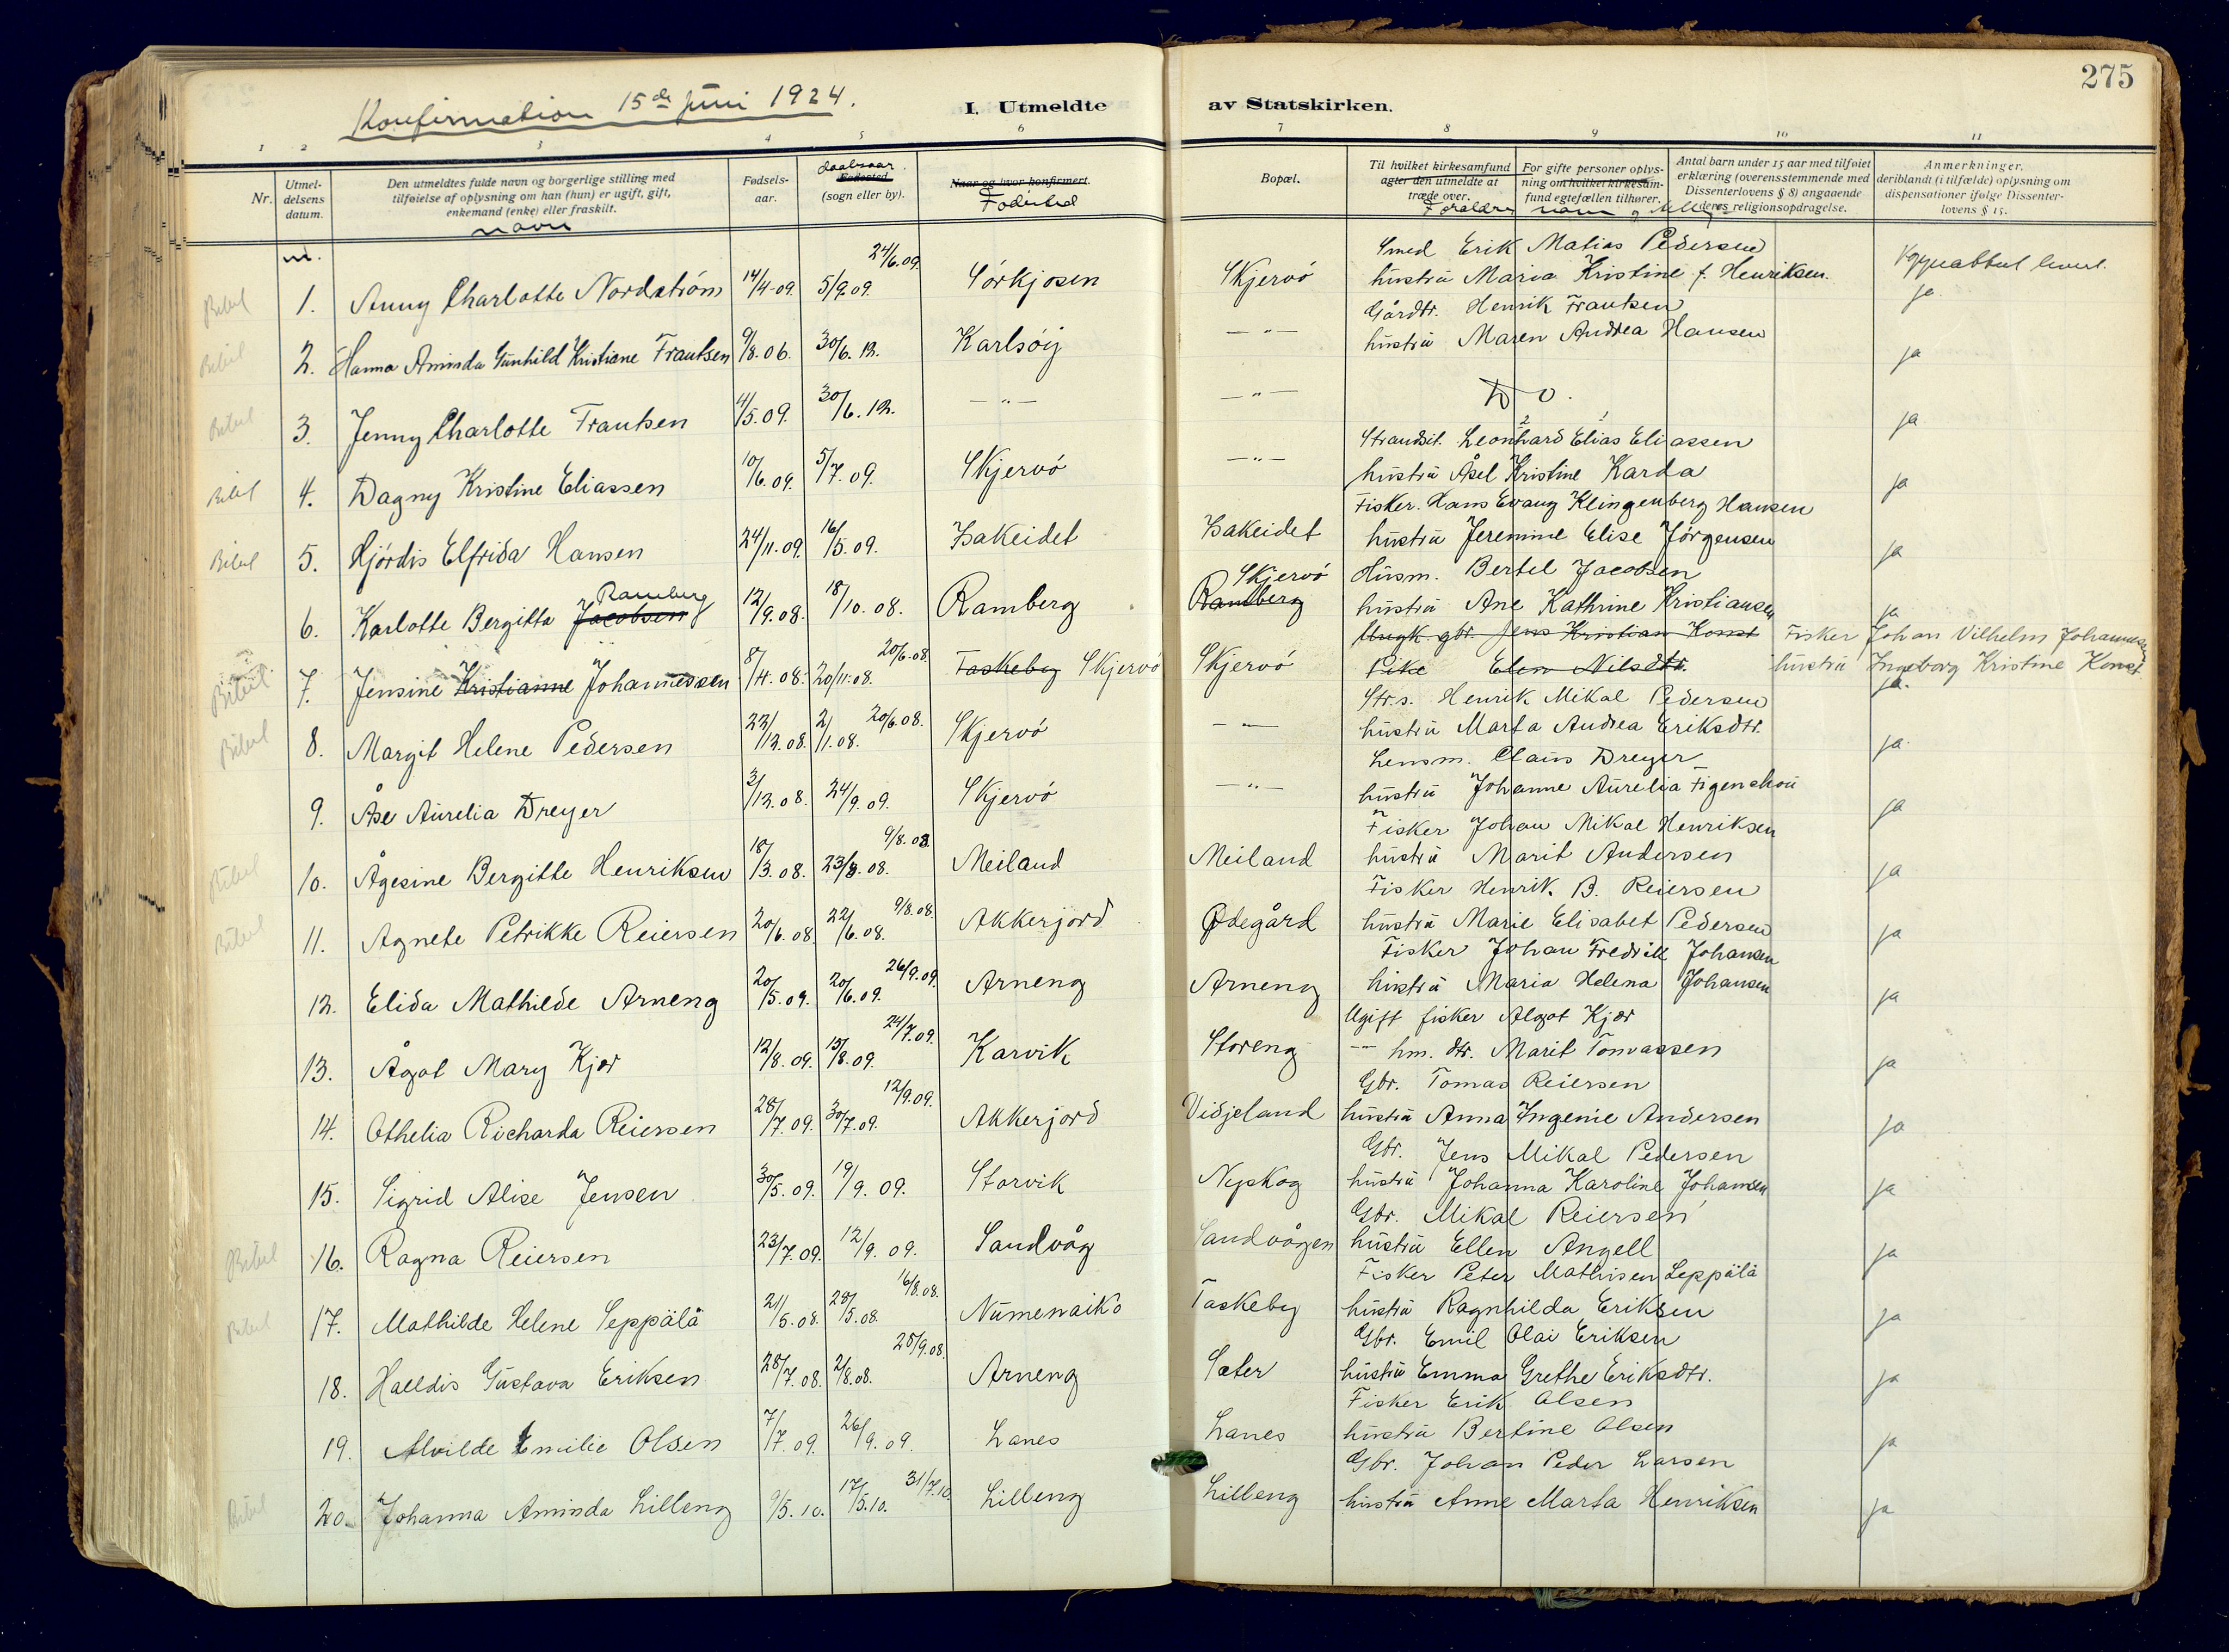 275
Konfirmation 15de juni 1924.
I. Utmeldte av Statskirken.
1 2 3 4 5 6 7 8 9 10 11
Nr.
Utmel-
delsens
datum.
Den utmeldtes fulde navn og borgerlige stilling med
tilføielse af oplysning om han (hun) er ugift, gift,
enkemand (enke) eller fraskilt.
navn
Fødsels-
aar.
daabsaar.
Fødested
(sogn eller by).
Naar og hvor konfirmert.
Fødested
Bopæl.
Til hvilket kirkesamfund
agter den utmeldte at
træde over.
For gifte personer oplys-
ning om hvilket kirkesam-
fund egtefællen tilhører.
Forældres navn og
Antal barn under 15 aar med tilføiet
erklæring (overensstemmende med
Dissenterlovens § 8) angaaende
deres religionsopdragelse.
Anmerkninger,
deriblandt (i tilfælde) oplysning om
dispensationer ifølge Dissenter-
lovens § 15.
Smed Erik Matias Pedersen
Bibel 1. Anny Charlotte Nordström 14/4-09. 5/9.09. 24/6.09. Sörkjosen Skjervö hustru Maria Kristine f. Henriksen. ja
Gårdbr. Henrik Frantsen
Bibel 2. Hanna Aminda Gunhild Kristiane Frantsen 9/8.06. 30/6.12. Karlsöy —"— hustru Maren Andrea Hansen ja
Bibel 3. Jenny Charlotte Frantsen 4/5.09. 30/6.12. —"— —"— Do. ja
2 1
Strandsit. Leonhard Elias Eliassen
Bibel 4. Dagny Kristine Eliassen 10/6.09. 5/7.09. Skjervö —"— hustru Åsel Kristine Karda ja
Fisker. Hans Evang Klingenberg Hansen
Bibel 5. Hjördis Elfrida Hansen 24/11.09. 16/5.09. Isakeidet Isakeidet hustru Jeremine Elise Jörgensen ja
Ramberg Skjervö Husm. Bertel Jacobsen
6. Karlotte Bergitta Jacobsen 12/9.08. 18/10.08. Ramberg Ramberg hustru Ane Kathrine Kristiansen ja
Ungk. gbr. Jens Kristian Konst Fisker Johan Vilhelm Johannessen
Bibel. 7. Jensine Kristianne Johannessen 8/4.08. 20/11.08. 20/6.08. Taskeby Skjervö Skjervö Pike Elen Nilsdtr. hustru Ingeborg Kristine Konst ja.
Str.s. Henrik Mikal Pedersen
Bibel 8. Margit Helene Pedersen 22/12.08. 2/1.08. 20/6.08. Skjervö —"— hustru Marta Andrea Eriksdtr. ja.
Lensm. Claus Dreyer
9. Åse Aurelia Dreyer 3/12.08. 24/9.09. Skjervö —"— hustru Johanne Aurelia Figenschou ja
Fisker Johan Mikal Henriksen
Bibel 10. Ågesine Bergitte Henriksen 18/3.08. 23/3.08. 9/8.08. Meiland Meiland hustru Marit Andersen ja
Fisker Henrik B. Reiersen
Bibel 11. Agnete Petrikke Reiersen 20/6.08. 22/6.08. 9/8.08. Akkerjord Ödegård hustru Marie Elisabet Pedersen ja
Fisker Johan Fredrik Johansen
12. Elida Mathilde Arneng 20/5.09. 20/6.09. 26/9.09. Arneng Arneng hustru Maria Helena Johansen ja
Ugift fisker Algot Kjær
13. Ågot Mary Kjær 12/8.09. 15/8.09. 24/7.09. Karvik Storeng —"— hm. dtr. Marit Tomassen ja
Gbr. Tomas Reiersen
14. Othelia Richarda Reiersen 28/7.09. 30/7.09. 12/9.09. Akkerjord Vidjeland hustru Anna Ingenie Andersen ja
Gbr. Jens Mikal Pedersen
15. Sigrid Alise Jensen 30/5.09. 19/9.09. Storvik Nyskog hustru Johanna Karoline Johansen ja
Gbr. Mikal Reiersen
Bibel 16. Ragna Reiersen 23/7.09. 12/9.09. Sandvåg Sandvågen hustru Ellen Angell ja
Fisker Peter Mathisen Leppälä
Bibel 17. Mathilde Helene Seppälä 21/5.08. 28/5.08. 16/8.08. Numenaiko Taskeby hustru Ragnhilda Eriksen ja
Gbr. Emil Olai Eriksen
18. Halldis Gustava Eriksen 28/7.08. 2/8.08. 25/9.08. Arneng Sæter hustru Emma Grethe Eriksdtr. ja
Fisker Erik Olsen
19. Alvilde Emilie Olsen 7/7.09. 26/9.09. Lanes Lanes hustru Bertine Olsen ja
Gbr. Johan Peder Larsen
Bibel 20. Johanna Aminda Lilleng 9/5.10. 17/5.10. 31/7.10. Lilleng Lilleng hustru Anne Marta Henriksen ja